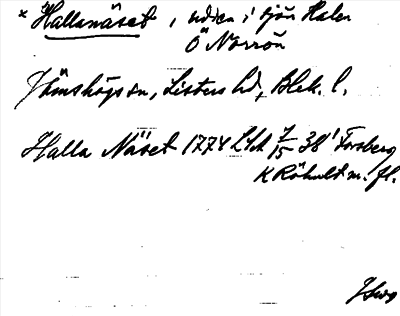 * Hallanäset, udden i sjön Halen
Ö Norrön
Jämshögs sn, Listers hd, Blek. l.
Halla Näset 1774 LStA 7/15 38' Forsberg
K Röhult m. fl.